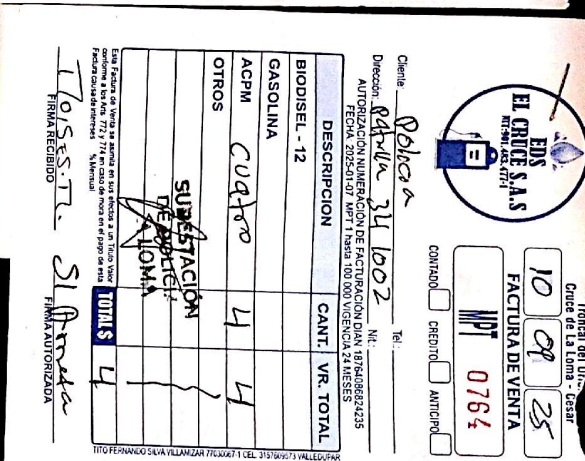 EDS
EL CRUCE S.A.S
NIT:901.483.477-1
Troncal del Orie
Cruce de La Loma - Cesar
10 09 25
FACTURA DE VENTA
MPT 0764
CONTADO CREDITO ANTICIPO
Cliente: Policia Tel.:
Dirección: Patrulla 34 1002 Nit.:
AUTORIZACIÓN NUMERACIÓN DE FACTURACIÓN DIAN 18764086824235
FECHA 2025-01-07 MPT 1 hasta 100 000 VIGENCIA 24 MESES
DESCRIPCION CANT. VR. TOTAL
BIODISEL - 12
GASOLINA
ACPM cuatro 4 4
OTROS
SUBESTACIÓN
DE POLICIA
LA LOMA
Esta Factura de Venta se asimila en sus efectos a un Titulo Valor
conforme a los Arts. 772 y 774 en caso de mora en el pago de esta
Factura causada intereses % Mensual
TOTAL $ 4
FIRMA RECIBIDO
FIRMA AUTORIZADA
TITO FERNANDO SILVA VILLAMIZAR 77030067-1 CEL. 3157609573 VALLEDUPAR